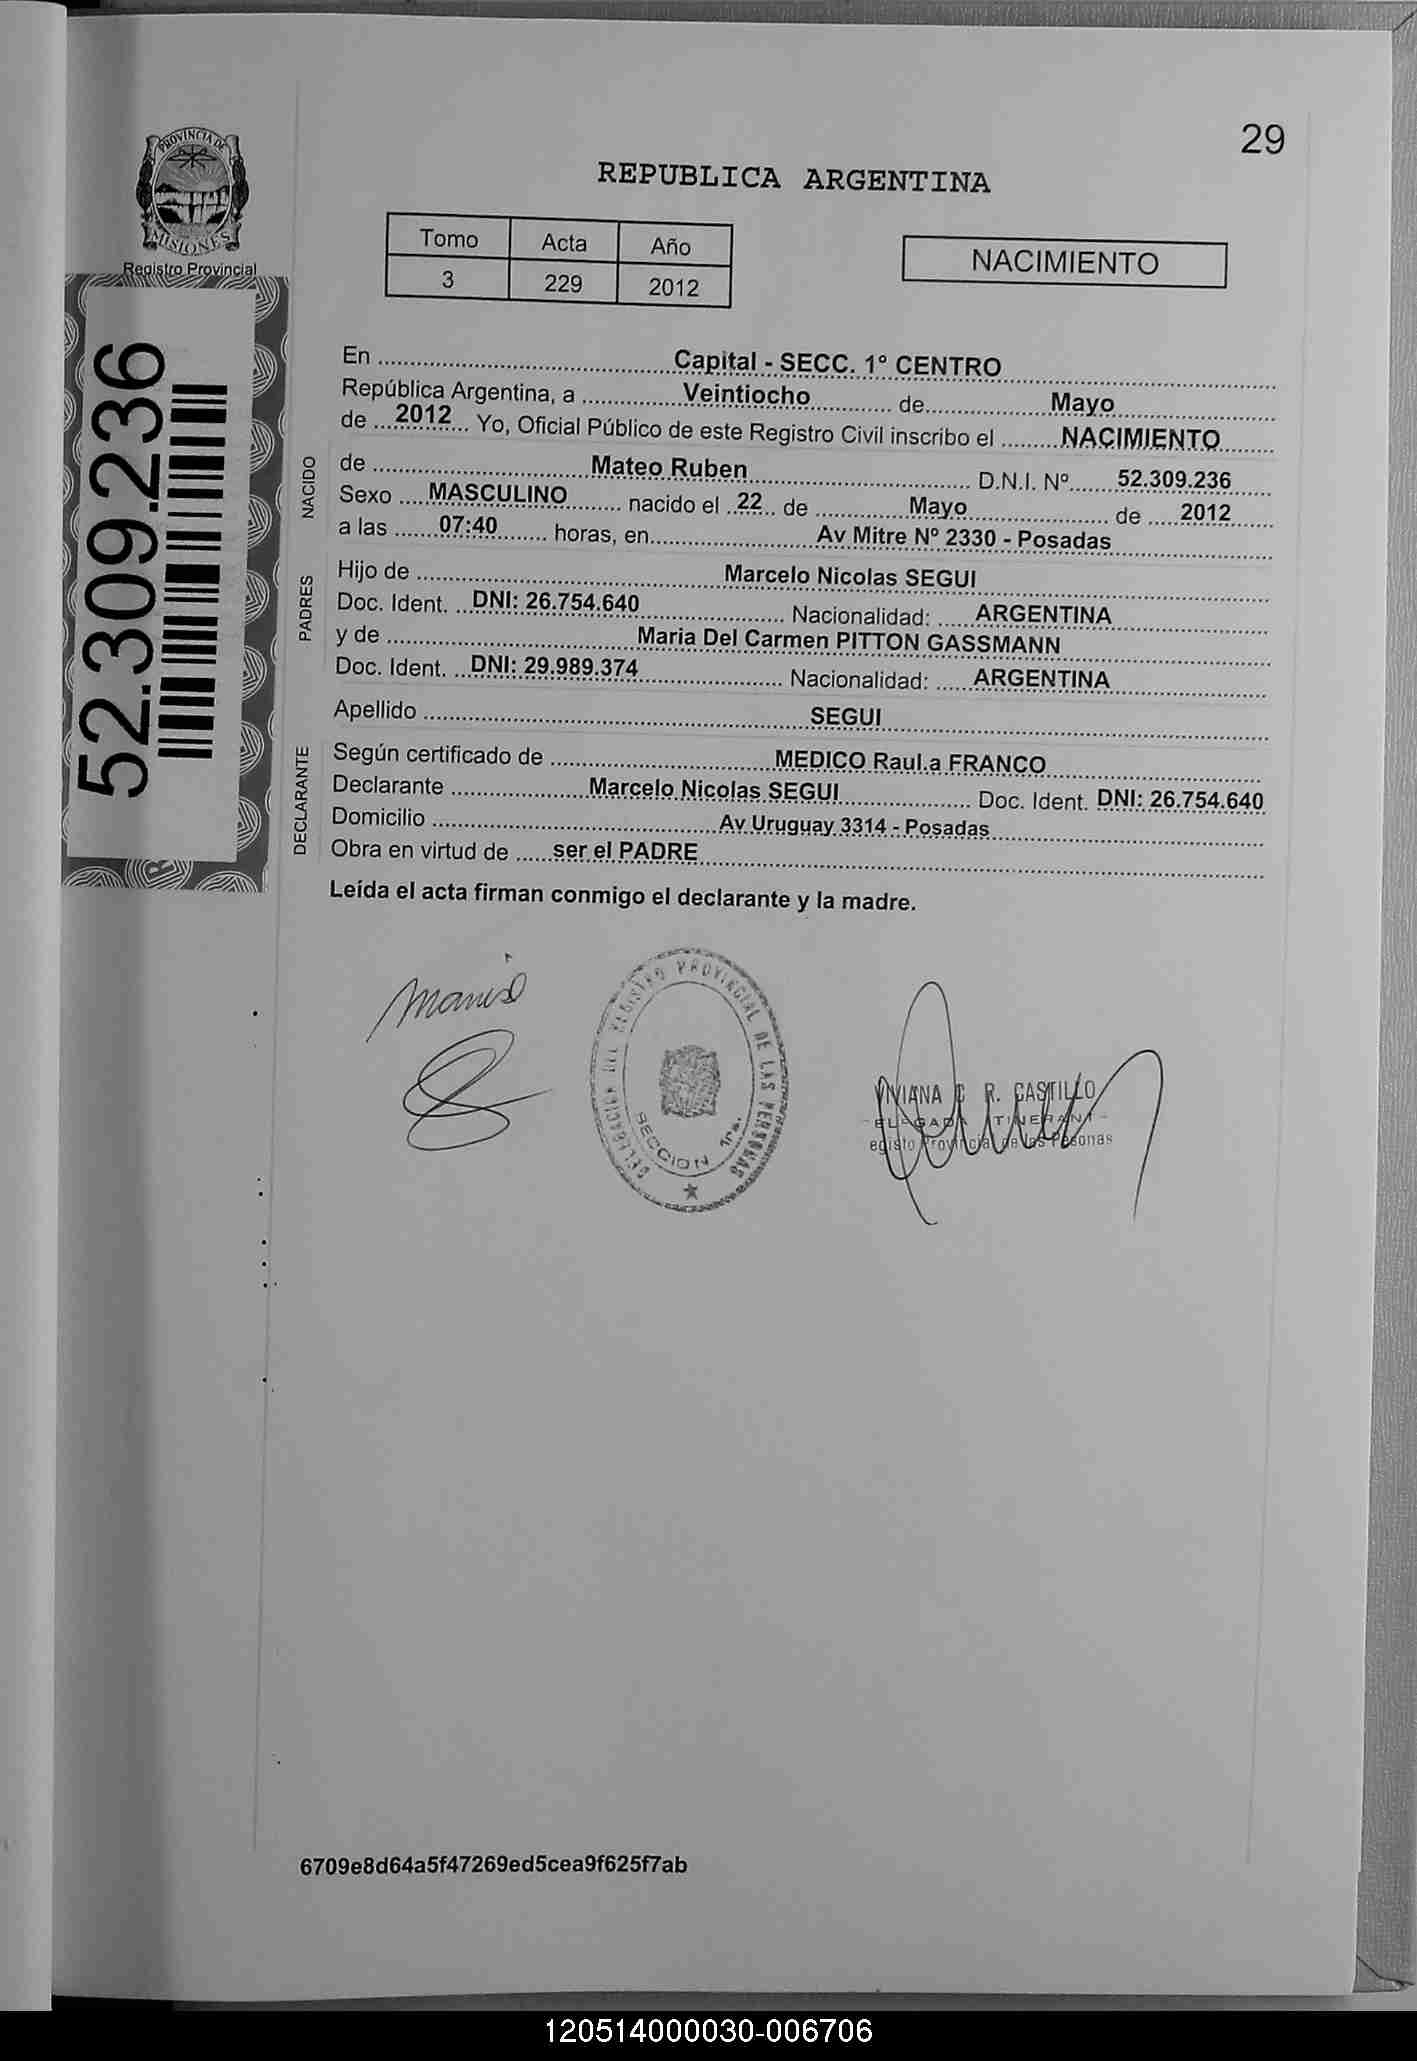 29
PROVINCIA DE
MISIONES
Registro Provincial
REPUBLICA ARGENTINA
Tomo Acta Año
3 229 2012
NACIMIENTO
52.309.236
En Capital - SECC. 1º CENTRO
República Argentina, a Veintiocho de Mayo
de 2012 Yo, Oficial Público de este Registro Civil inscribo el NACIMIENTO
NACIDO
de Mateo Ruben D.N.I. Nº 52.309.236
Sexo MASCULINO nacido el 22 de Mayo de 2012
a las 07:40 horas, en Av Mitre Nº 2330 - Posadas
PADRES
Hijo de Marcelo Nicolas SEGUI
Doc. Ident. DNI: 26.754.640 Nacionalidad: ARGENTINA
y de Maria Del Carmen PITTON GASSMANN
Doc. Ident. DNI: 29.989.374 Nacionalidad: ARGENTINA
Apellido SEGUI
DECLARANTE
Según certificado de MEDICO Raul.a FRANCO
Declarante Marcelo Nicolas SEGUI Doc. Ident. DNI: 26.754.640
Domicilio Av Uruguay 3314 - Posadas
Obra en virtud de ser el PADRE
Leída el acta firman conmigo el declarante y la madre.
DELEGACION DEL REGISTRO PROVINCIAL DE LAS PERSONAS
SECCION 1ra.
VIVIANA C R. CASTILLO
egisto Provincial de las Pesonas
6709e8d64a5f47269ed5cea9f625f7ab
120514000030-006706